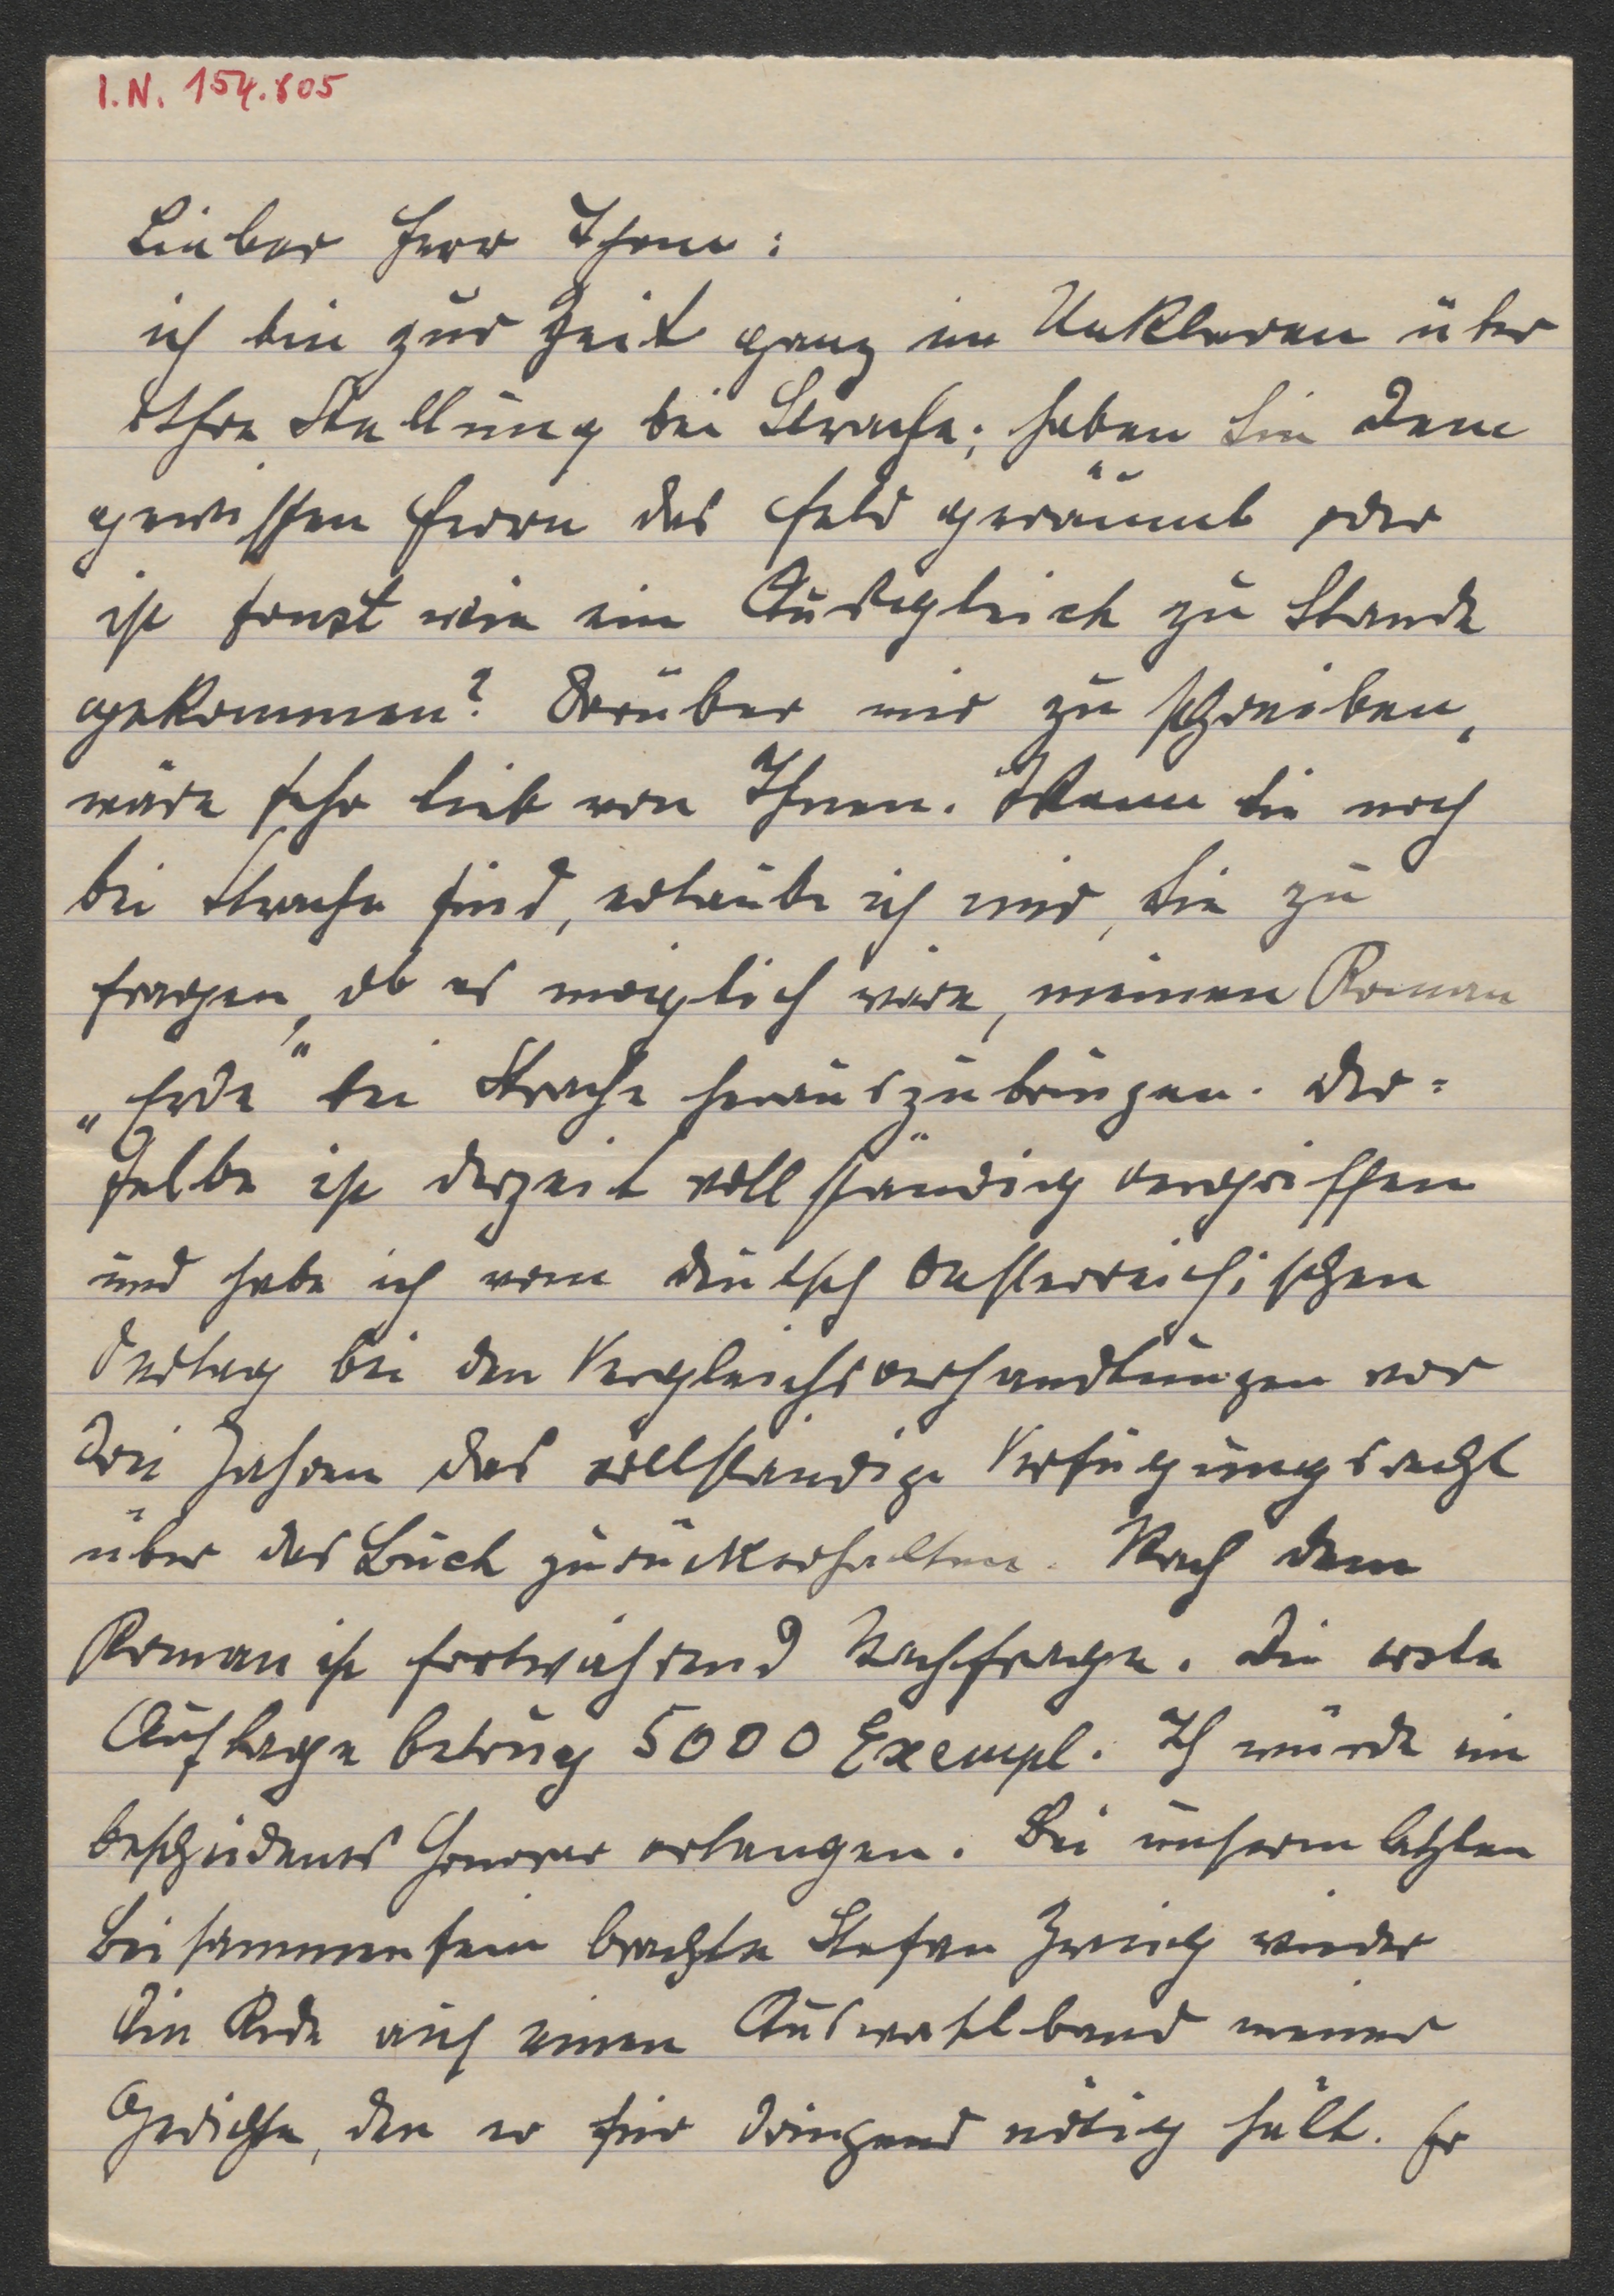 I.N. 154.805
Lieber Herr Thom:
ich bin zur Zeit ganz im Unklaren über
Ihre Stellung bei Strache; haben Sie dem
gewissen Herrn das Feld geräumt oder
ist sonst wie ein Ausgleich zu Stande
gekommen? Darüber mir zu schreiben,
wäre sehr lieb von Ihnen. Wenn Sie noch
bei Strache sind, erlaube ich mir, Sie zu
fragen, ob es möglich wäre, meinen Roman
„Erde" bei Strache herauszubringen. Der=
selbe ist derzeit vollständig vergriffen
und habe ich vom deutsch oesterreichischen
Verlag bei den Vergleichsverhandlungen vor
drei Jahren das vollständige Verfügungsrecht
über das Buch zurückerhalten. Nach dem
Roman ist fortwährend Nachfrage. Die erste
Auflage betrug 5000 Exempl. Ich würde ein
bescheidenes Honorar verlangen. Bei unserm letzten
Beisammensein brachte Stefan Zweig wieder
die Rede auf einen Auswahlband meiner
Gedichte, den er für dringend nötig hält. Er